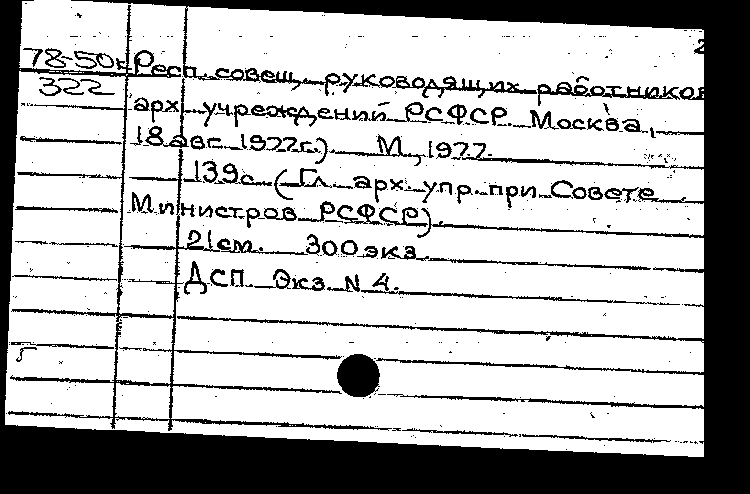 2
78-50к Респ. совещ. руководящих работников
322
арх. учреждений РСФСР Москва,
18 авг. 1977г.) М., 1977.
139с. (Гл. арх. упр. при Совете
Министров РСФСР).
21см. 300 экз.
ДСП. Экз. N 4.